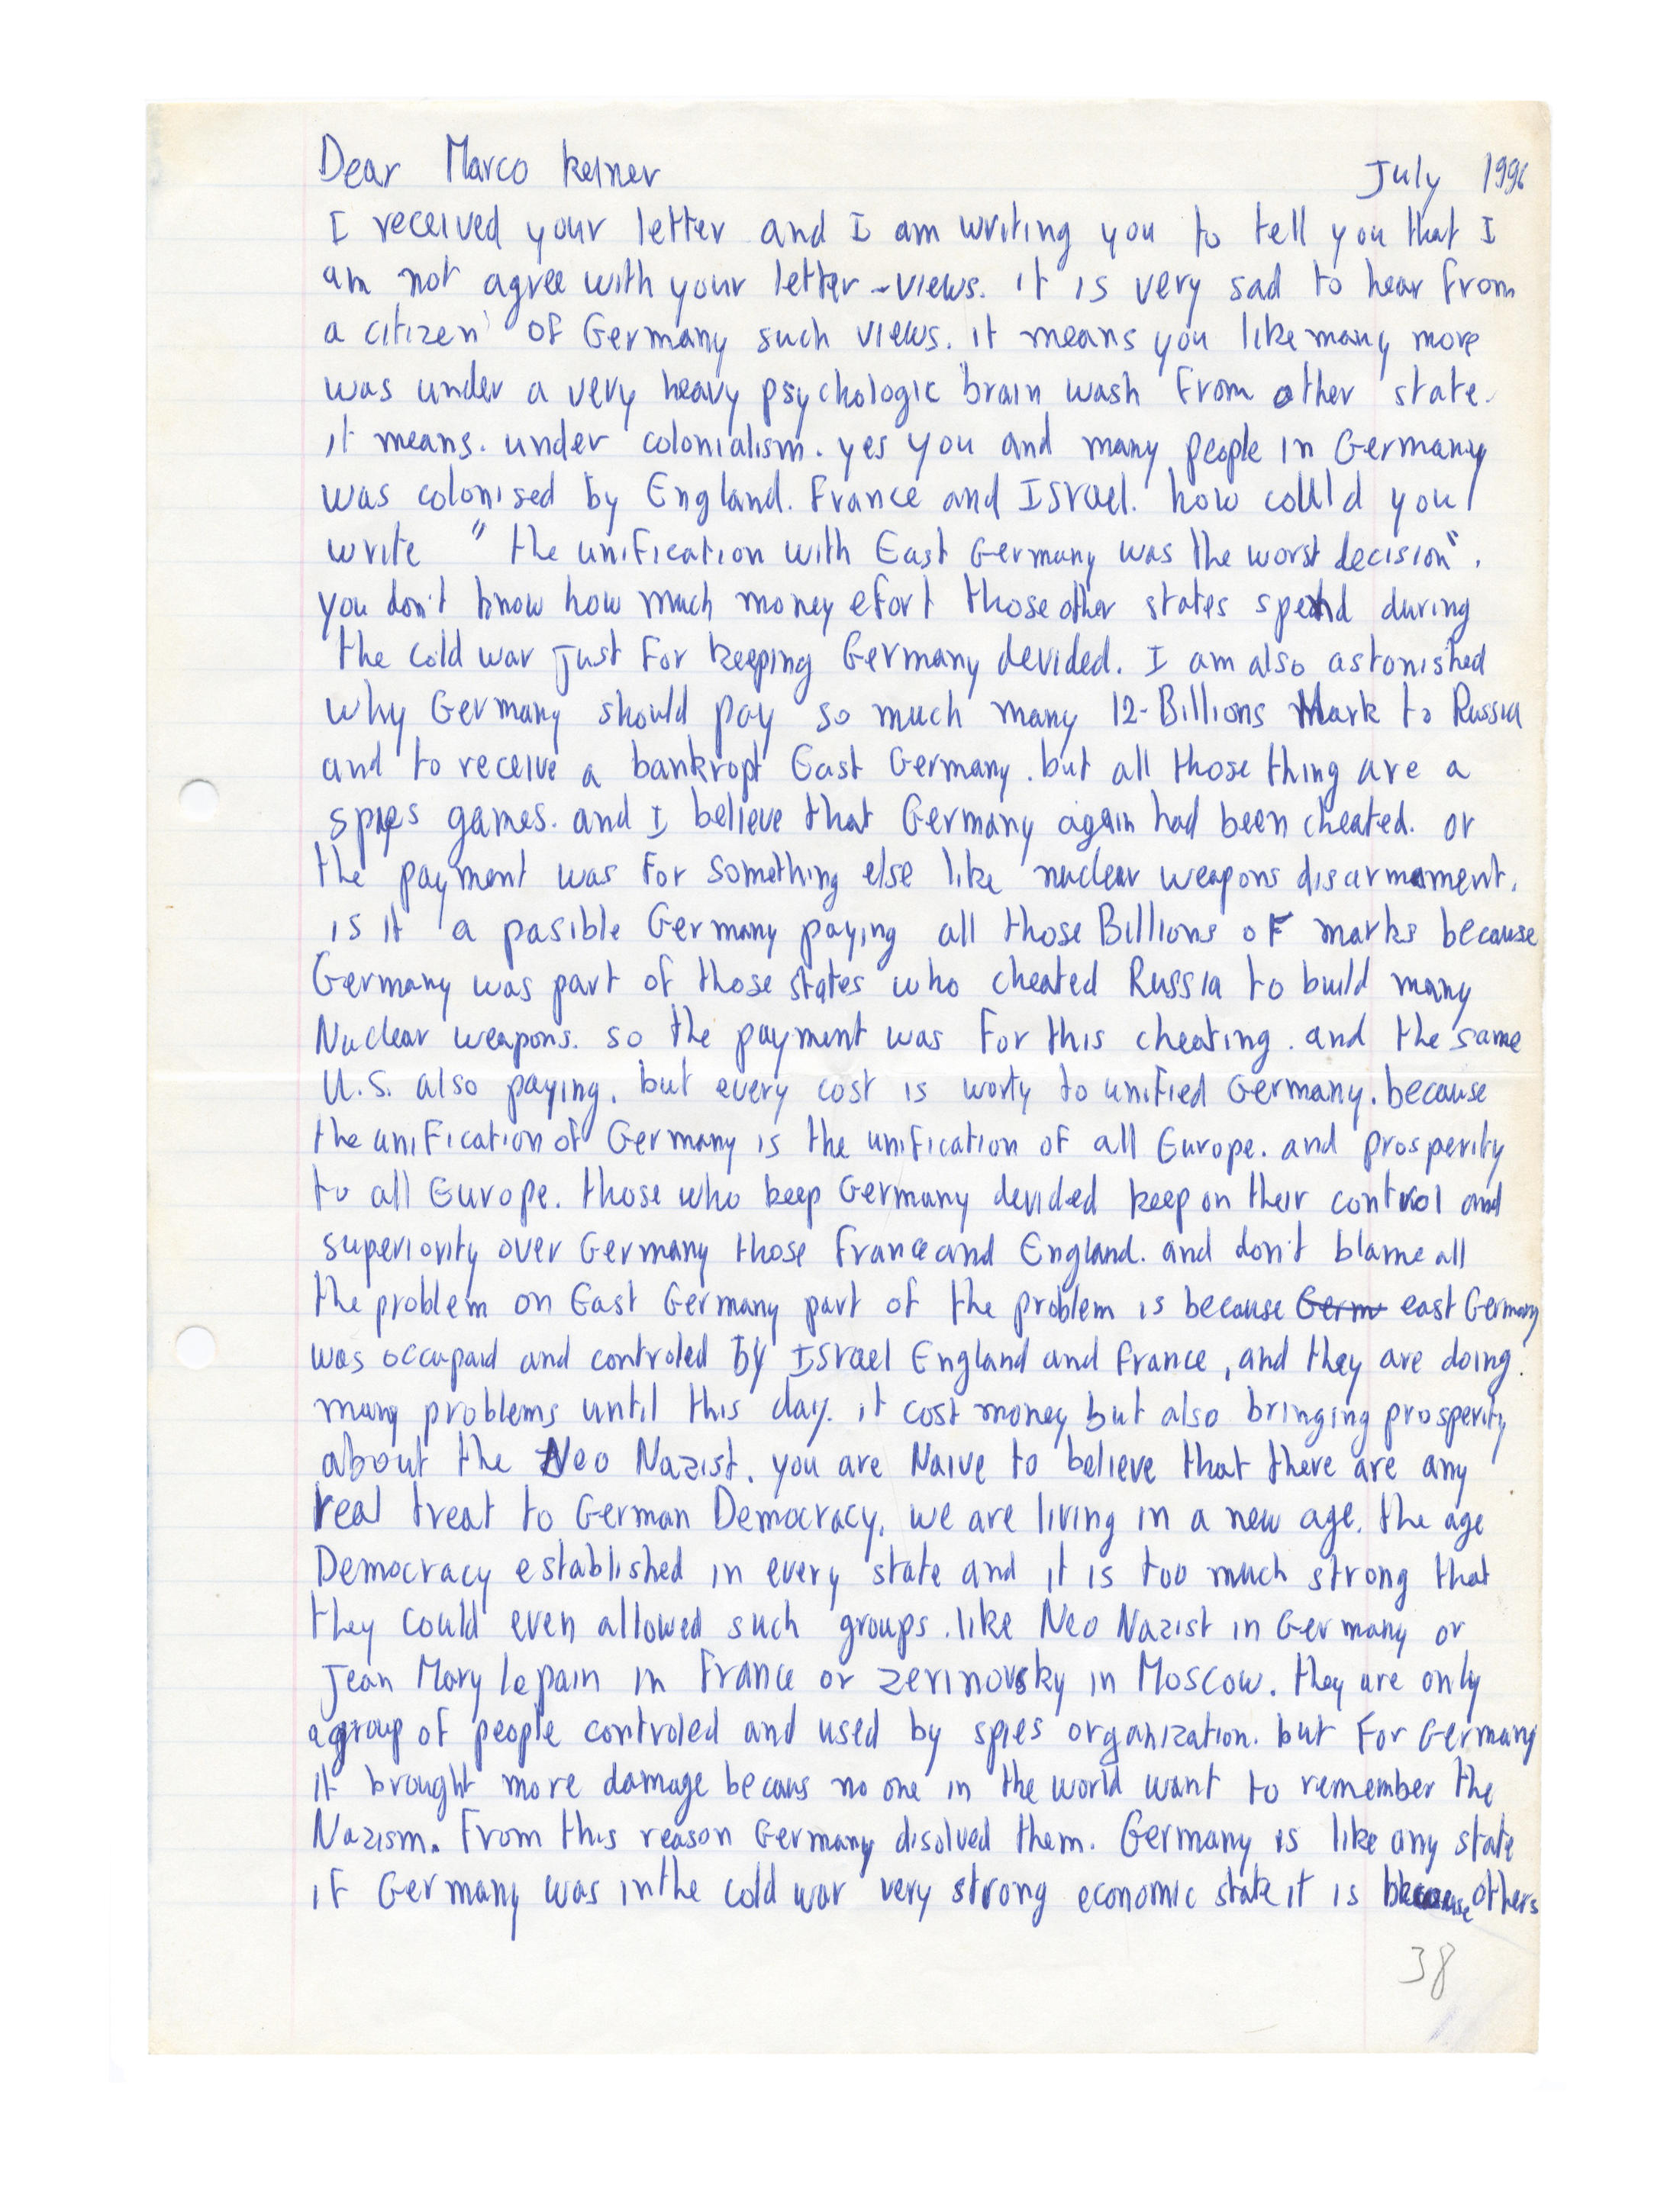 Dear Marco Keiner July 1996
I received your letter and I am writing you to tell you that I
am not agree with your letter - views. it is very sad to hear from
a citizen of Germany such views. it means you like many more
was under a very heavy psychologic brain wash from other state.
it means. under colonialism. yes you and many people in Germany
was colonised by England. France and Israel. how could you
write "the unification with East Germany was the worst decision".
you don't know how much money efort those other states spend during
the cold war just for keeping Germany devided. I am also astonished
why Germany should pay so much many 12-Billions Mark to Russia
and to receive a bankropt East Germany. but all those thing are a
spies games. and I believe that Germany again had been cheated. or
the payment was for something else like nuclear weapons disarmament.
is it a pasible Germany paying all those Billions of marks because
Germany was part of those states who cheated Russia to build many
Nuclear weapons. so the payment was for this cheating. and the same
U.S. also paying. but every cost is worty to unified Germany. because
the unification of Germany is the unification of all Europe. and prosperity
to all Europe. those who keep Germany devided keep on their control and
superiority over Germany those France and England. and don't blame all
the problem on East Germany part of the problem is because Germ east Germany
was occupaid and controled by Israel England and France, and they are doing.
many problems until this day. it cost money but also bringing prosperity
about the Neo Nazist. you are Naive to believe that there are any
real treat to German Democracy. we are living in a new age. the age
Democracy established in every state and it is too much strong that
they could even allowed such groups. like Neo Nazist in Germany or
Jean Mary lepain in France or zerinovsky in Moscow. they are only
a group of people controled and used by spies organization. but for Germany
it brought more damage becaus no one in the world want to remember the
Nazism. From this reason Germany disolved them. Germany is like any state
if Germany was in the cold war very strong economic state it is because others
38